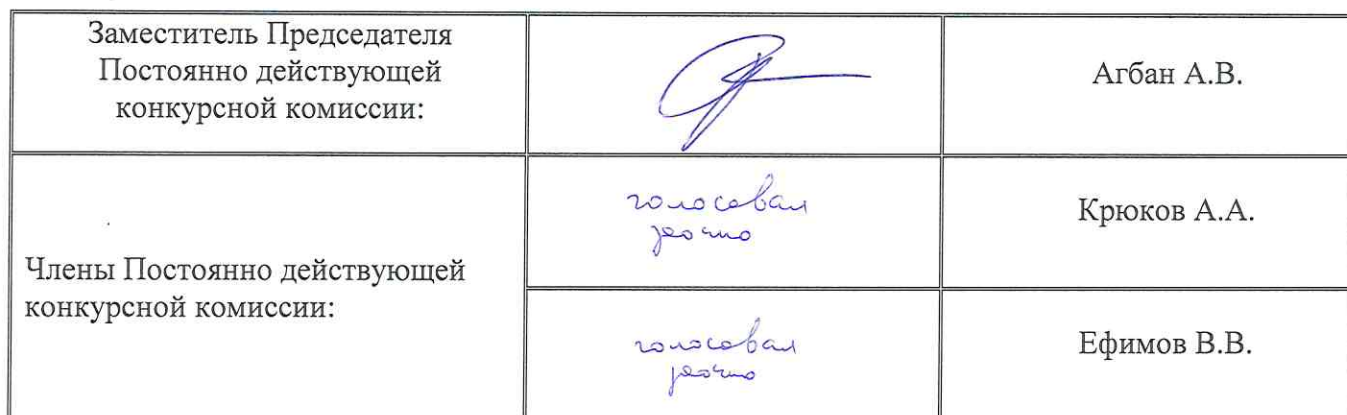 Заместитель Председателя
Постоянно действующей
конкурсной комиссии:
Агбан А.В.
Члены Постоянно действующей
конкурсной комиссии:
голосовал
заочно
Крюков А.А.
голосовал
заочно
Ефимов В.В.